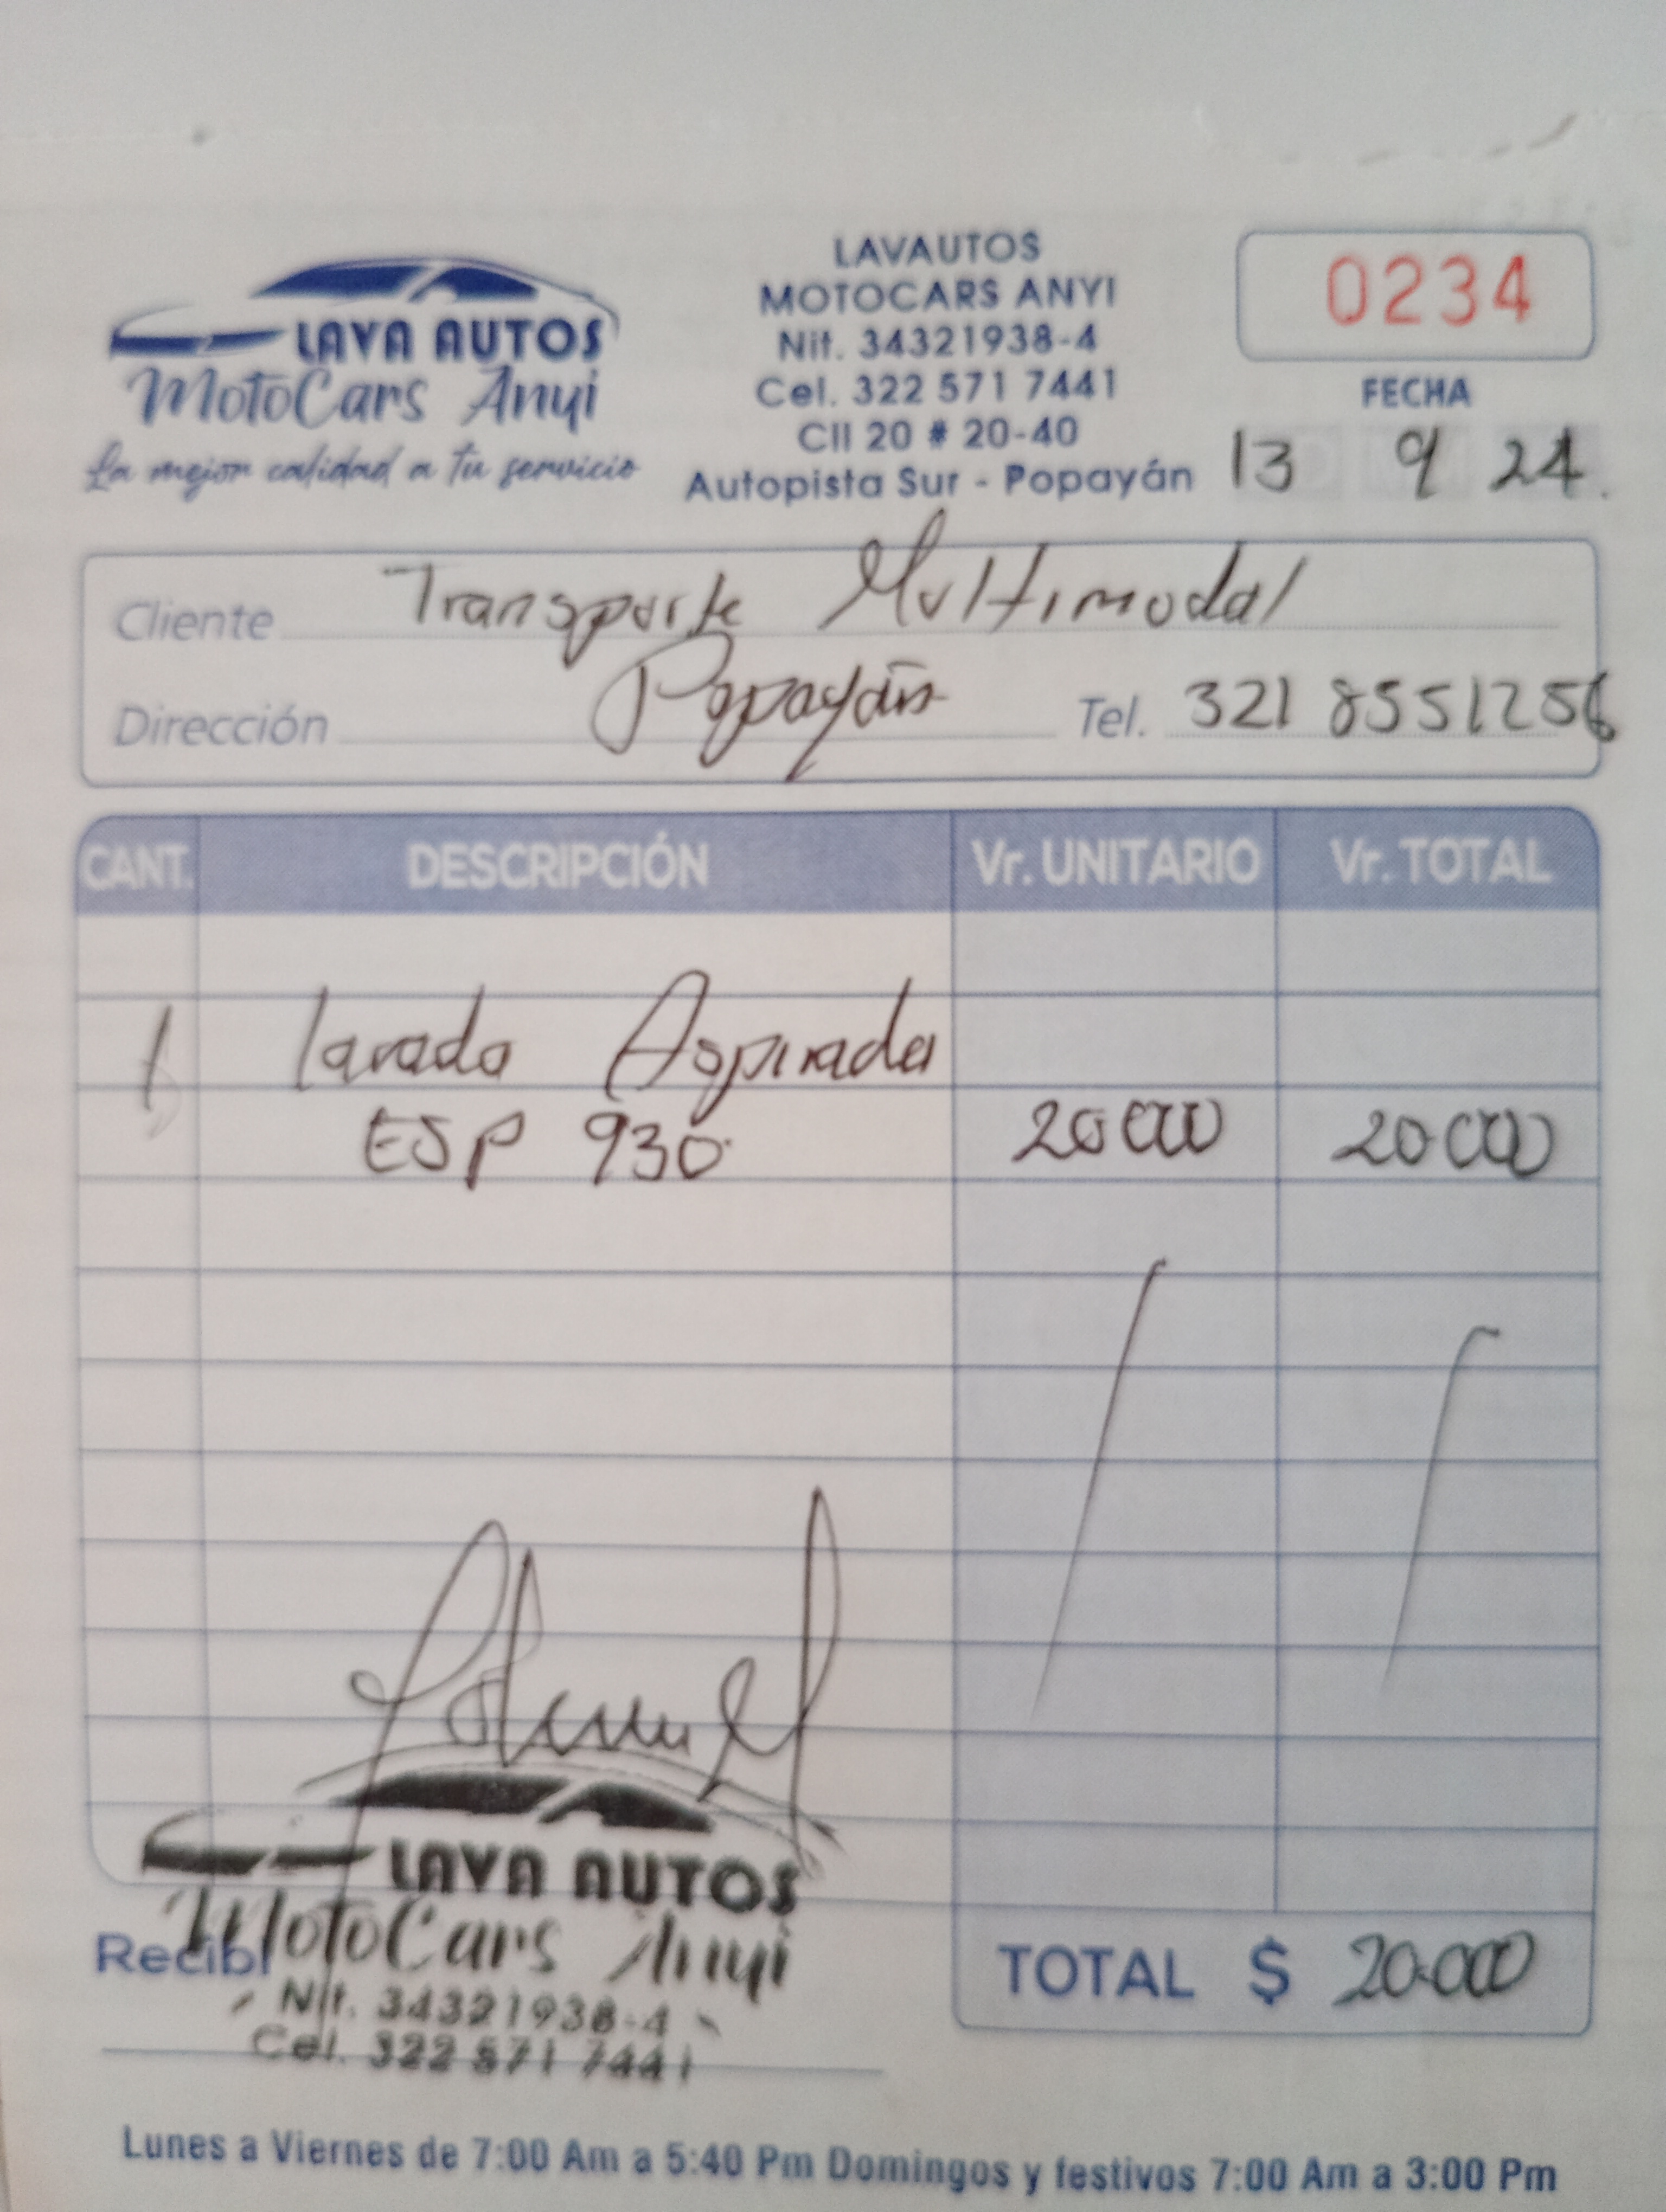 LAVA AUTOS
MotoCars Anyi
La mejor calidad a tu servicio
LAVAUTOS
MOTOCARS ANYI
Nit. 34321938-4
Cel. 322 571 7441
Cll 20 # 20-40
Autopista Sur - Popayán
0234
FECHA
13 9 24
Cliente Transporte Multimodal
Dirección Popayán Tel. 321 8551256
CANT. DESCRIPCIÓN Vr. UNITARIO Vr. TOTAL
1 lavado Aspirada
ESP 930 20000 20000
LAVA AUTOS
MotoCars Anyi
Recibí
Nit. 34321938-4
Cel. 322 571 7441
TOTAL $ 20.000
Lunes a Viernes de 7:00 Am a 5:40 Pm Domingos y festivos 7:00 Am a 3:00 Pm